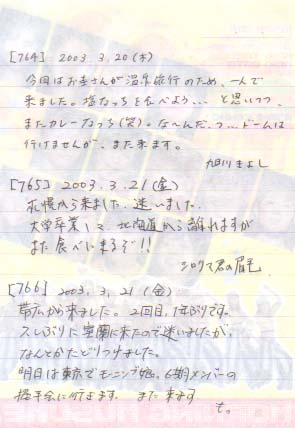 [764] 2003. 3. 20 (木)
今回はお圭さんが温泉旅行のため、一人で
来ました。塩なっちを食べよう... と思いつつ
またカレーなっち(笑)。な〜んだ、つ... ドームは
行けませんが、また来ます。
旭川きよし
[765] 2003. 3. 21 (金)
札幌から来ました。迷いました。
大学卒業して、北海道から離れますが
また食べに来るぞ!!
シロクマ君の眉毛
[766] 2003. 3. 21 (金)
帯広から来ました。2回目、1年ぶりです。
久しぶりに室蘭に来たので迷いましたが、
なんとかたどりつけました。
明日は東京でモーニング娘。6期メンバーの
握手会に行きます。また来ます
も。